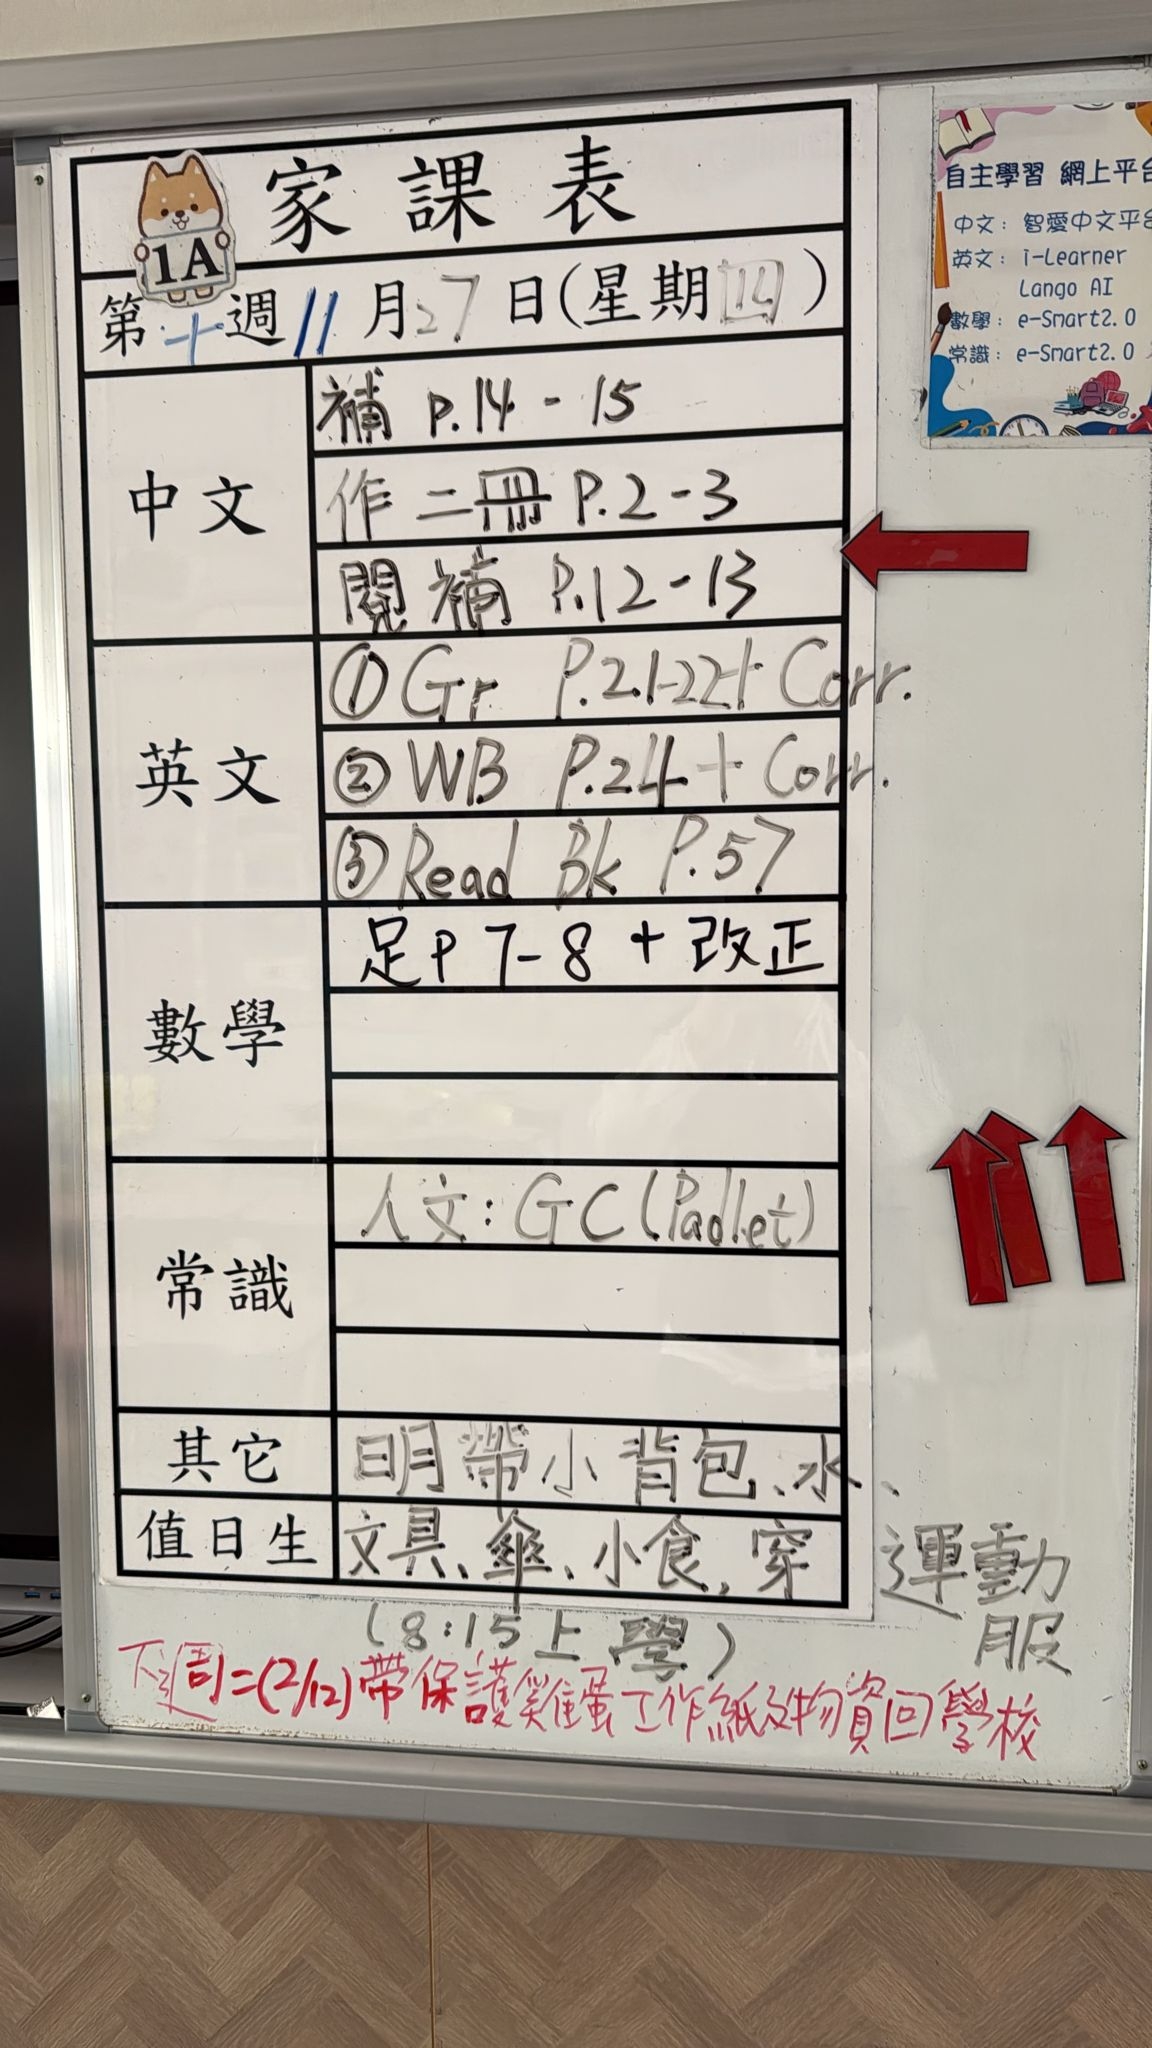 家課表
1A
第十週11月27日(星期四)
中文
補 P.14 - 15
作 二冊 P.2-3
閱補 P.12-13
英文
① Gr P.21-22+ Corr.
② WB P.24 + Corr.
③ Read Bk P.57
數學
足P 7-8 + 改正
常識
人文: GC (Padlet)
其它
明帶小背包、水、
值日生
文具、傘、小食, 穿 運動
服
(8:15上學)
下週二(2/12)帶保護雞蛋工作紙及物資回學校
自主學習 網上平台
中文: 智愛中文平台
英文: i-Learner
Lango AI
數學: e-Smart2.0
常識: e-Smart2.0